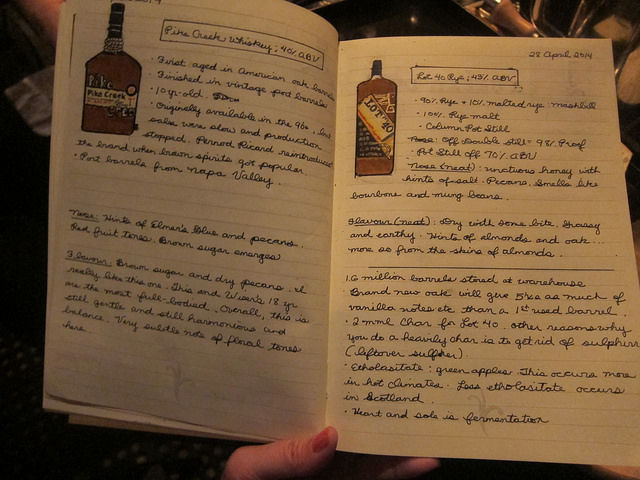 Pike Creek Whiskey; 40% ABV
Pike
Pike Creek
· First aged in American oak barrels
Finished in vintage port barrels
· 10 yr old.
· Originally available in the 90s, but
sales were slow and production
stopped. Pernod Ricard reintroduced
the brand when brown spirits got popular.
· Port barrels from Napa Valley.
Nose: Hints of Elmer's Glue and pecans.
Red fruit tones. Brown sugar emerges
Flavour: Brown sugar and dry pecans. I
really like this one. This and Wiser's 18 yr
are the most full-bodied. Overall, this is
still gentle and still harmonious and
balance. Very subtle note of floral tones
here.
28 April 2014
Lot 40 Rye; 43% ABV
LOT 40
· 90% Rye + 10% malted rye mashbill
· 100% Rye malt
· Column Pot Still
Nose: Off Double Still = 98% Proof
· Pot Still off 70% ABV
Nose (neat): unctuous honey with
hints of salt. Pecans. Smells like
bourbone and mung beans.
Flavour (neat): Dry with some bite. Grassy
and earthy. Hints of almonds and oak...
more so from the skins of almonds.
1.6 million barrels stored at warehouse
· Brand new oak will give 5xes as much of
vanilla notes etc than a 1st used barrel.
· 2 mml Char for Lot 40. Other reasons why
you do a heavily char is to get rid of sulphur
(leftover sulpher)
· Etholasitate: green apples. This occurs more
in hot climates. Less etholasitate occurs
in Scotland.
· Heart and sole is fermentation